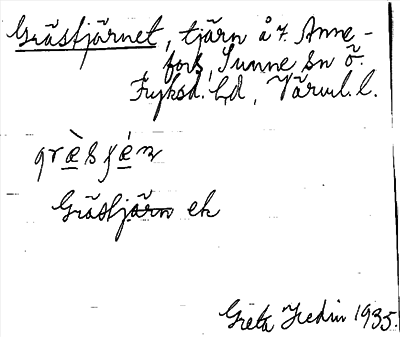 Gräsfjärnet, tjärn å 7. Anne-
fors, Sunne sn Ö.
Fryksd. hd, Värml. l.
Gräsfjärn ek
Greta Hedin 1935.